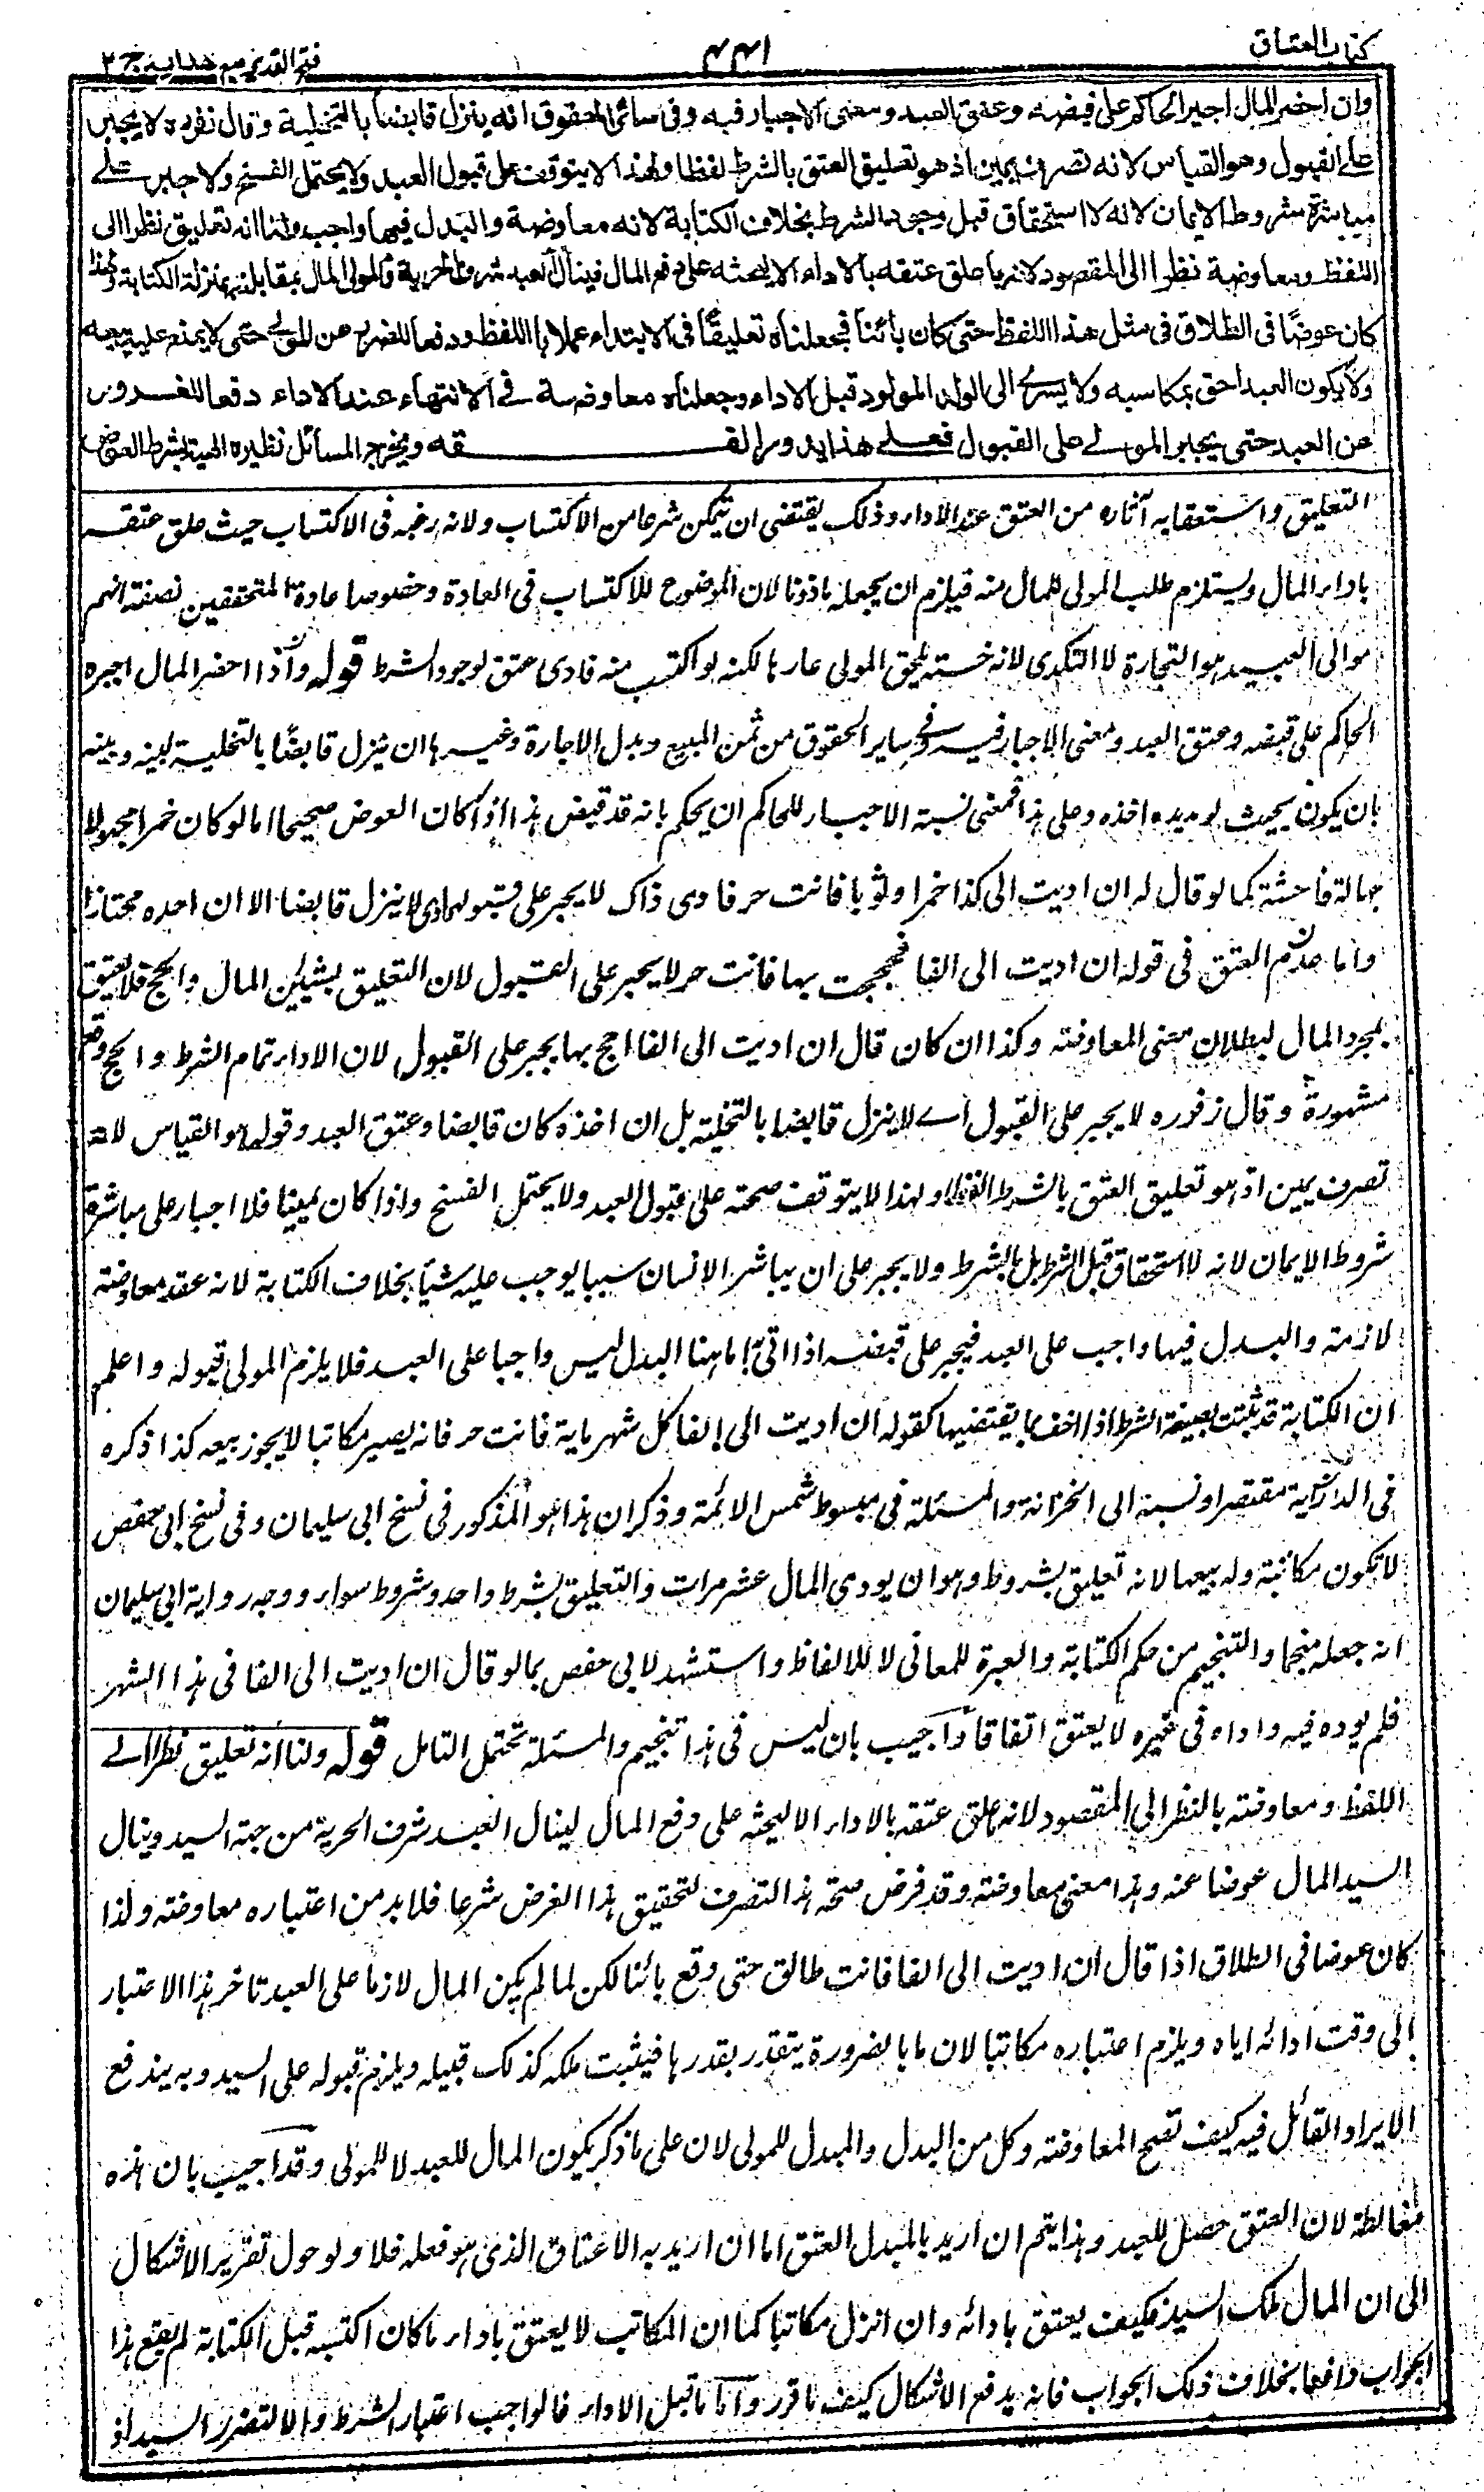 كتاب العتاق
٤٤١
فتح القدير مع هداية ج ٢
وان احضر المال اجبر الحاكم على قبضه وعتق العبد ومعنى الاجبار فيه وفى سائر الحقوق انه ينزل قابضا بالتخلية وقال زفرره لا يجبر
على القبول وهو القياس لانه تصرف يمين اذ هو تعليق العتق بالشرط لفظا ولهذا لا يتوقف على قبول العبد ولا يحتمل الفسخ ولا جبر على
مباشرة شروط الايمان لانه لا استحقاق قبل وجود الشرط بخلاف الكتابة لانه معاوضة والبدل فيها واجب ولنا انه تعليق نظرا الى
اللفظ ومعاوضة نظرا الى المقصود لانه ما علق عتقه بالاداء الا ليحثه على دفع المال فينال العبد شرف الحرية والمولى المال بمقابلته بمنزلة الكتابة ولهذا
كان عوضًا فى الطلاق فى مثل هذا اللفظ حتى كان بائنا فجعلناه تعليقًا فى الابتداء عملا باللفظ ودفعا للضرر عن المولى حتى لا يمتنع عليه بيعه
ولا يكون العبد احق بمكاسبه ولا يسرى الى الولد المولود قبل الاداء وجعلناه معاوضة فى الانتهاء عند الاداء دفعا للغرور
عن العبد حتى يجبر المولى على القبول فعلى هذا يدور الفقه ويخرج المسائل نظيره الهبة بشرط العوض
التعليق واستعقابه آثاره من العتق عند الاداء وذلك يقتضى ان يتمكن شرعا من الاكتساب ولانه رغبه فى الاكتساب حيث علق عتقه
باداء المال ويستلزم طلب المولى للمال منه فيلزم ان يجعله ماذونا لان الموضوع للاكتساب فى العادة وخصوصا عادة المتحققين بصفة انهم
موالى العبيد هو التجارة لا التكدى لانه خسة يلحق المولى عارها لكنه لو اكتسب منه فادى عتق لوجود الشرط قوله واذا احضر المال اجبره
الحاكم على قبضه وعتق العبد ومعنى الاجبار فيه وفى ساير الحقوق من ثمن المبيع وبدل الاجارة وغيرها ان ينزل قابضًا بالتخلية بينه وبينه
بان يكون بحيث لو مد يده اخذه وعلى هذا فمعنى نسبة الاجبار للحاكم ان يحكم بانه قد قبض هذا اذا كان العوض صحيحا اما لو كان خمرا او مجهولا
جهالة فاحشة كما لو قال له ان اديت الى كذا خمرا او ثوبا فانت حر فادى ذاك لا يجبر على قبولهما اى لا ينزل قابضا الا ان اخذه مختارا
واما عدم العتق فى قوله ان اديت الى الفا فحججت بها فانت حر لا يجبر على القبول لان التعليق بشيئين المال والحج فلا يعتق
بمجرد المال لبطلان معنى المعاوضة وكذا ان كان قال ان اديت الى الفا احج بها يجبر على القبول لان الاداء تمام الشرط والحج وقع
مشهورة وقال زفرره لا يجبر على القبول اے لا ينزل قابضا بالتخلية بل ان اخذه كان قابضا وعتق العبد وقوله هو القياس لانه
تصرف يمين اذ هو تعليق العتق بالشرط لفظا ولهذا لا يتوقف صحته على قبول العبد ولا يحتمل الفسخ واذا كان يمينا فلا اجبار على مباشرة
شروط الايمان لانه لا استحقاق قبل الشرط بل بالشرط ولا يجبر على ان يباشر الانسان سببا يوجب عليه شيأ بخلاف الكتابة لانه عقد معاوضة
لازمة والبدل فيها واجب على العبد فيجبر على قبضه اذا اتى به اما هنا البدل ليس واجبا على العبد فلا يلزم المولى قبوله واعلم
ان الكتابة قد تثبت بصيغة الشرط اذا احف بما يقتضيها كقوله ان اديت الى الفا كل شهر ماية فانت حر فانه يصير مكاتبا لا يجوز بيعه كذا ذكره
فى الدراية مقتصرا ونسبه الى الخزانة والمسئلة فى مبسوط شمس الائمة وذكر ان هذا هو المذكور فى نسخ ابى سليمان وفى نسخ ابى حفص
لا تكون مكاتبة وله بيعها لانه تعليق بشروط وهو ان يودى المال عشر مرات والتعليق بشرط واحد وشروط سواء ووجه رواية ابى سليمان
انه جعله منجما والتنجيم من حكم الكتابة والعبرة للمعانى لا للالفاظ واستشهد لابى حفص بما لو قال ان اديت الى الفا فى هذا الشهر
فلم يوده فيه واداه فى غيره لا يعتق اتفاقا واجيب بان ليس فى هذا تنجيم والمسئلة تحتمل التامل قوله ولنا انه تعليق نظرا الى
اللفظ ومعاوضة بالنظر الى المقصود لانه ما علق عتقه بالاداء الا ليحثه على دفع المال لينال العبد شرف الحرية من جهة السيد وينال
السيد المال عوضا عنه وهذا معنى معاوضة وقد فرض صحة هذا التصرف لتحقيق هذا الغرض شرعا فلا بد من اعتباره معاوضة ولذا
كان عوضا فى الطلاق اذا قال ان اديت الى الفا فانت طالق حتى وقع بائنا لكن لما لم يكن المال لازما على العبد تاخر هذا الاعتبار
الى وقت ادائه اياه ويلزم اعتباره مكاتبا لان ما بالضرورة يتقدر بقدرها فيثبت ملكه كذلك قبيله ويلزم قبوله على السيد وبه يندفع
الايراد القائل فيه كيف تصح المعاوضة وكل من البدل والمبدل للمولى لان على ما ذكر يكون المال للعبد لا للمولى وقد اجيب بان هذه
مغالطة لان العتق حصل للعبد وهذا يتم ان اريد بالمبدل العتق اما ان اريد به الاعتاق الذى هو فعله فلا ولو حول تقرير الاشكال
الى ان المال ملك السيد فكيف يعتق بادائه وان انزل مكاتبا كما ان المكاتب لا يعتق باداء ما كان اكتسبه قبل الكتابة لم يقع هذا
الجواب دافعا بخلاف ذلك الجواب فانه يدفع الاشكال كيف ما قرر واما ما قبل الاداء فالواجب اعتبار الشرط والا لتضرر السيد اذ